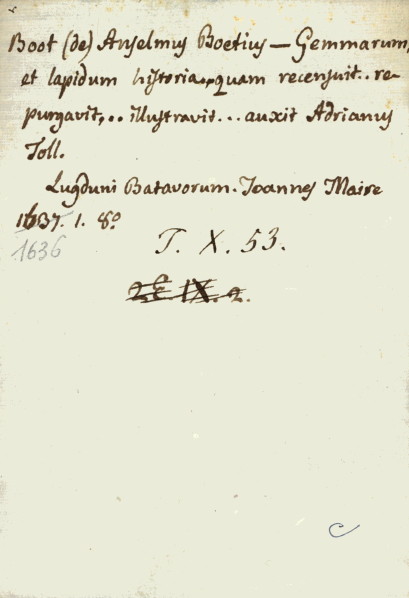 Boot (de) Anselmus Boetius — Gemmarum,
et lapidum historia, quam recensuit.. re-
purgavit,.. illustravit... auxit Adrianus
Toll.
Lugduni Batavorum. Joannes Maire
1637. 1. 8º
1636
T. X. 53.
IX. 2.